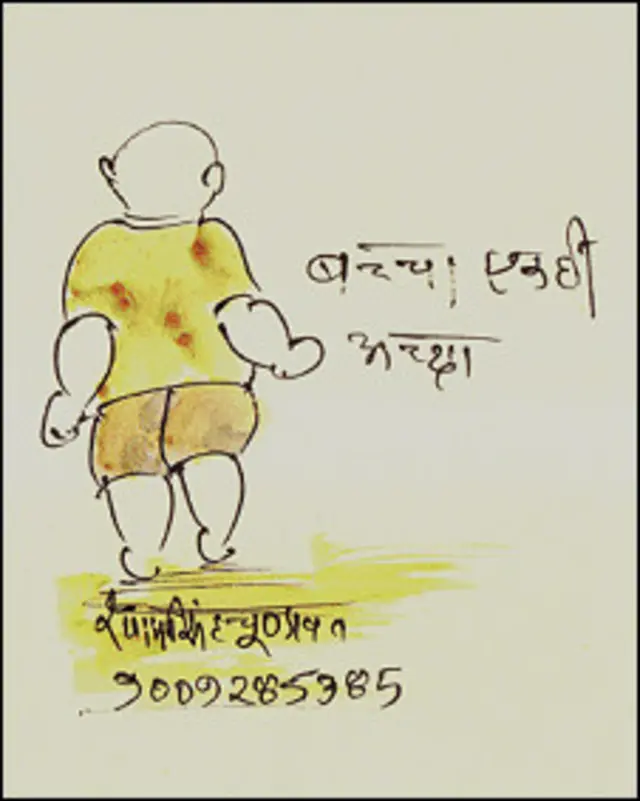 बच्चा एक ही
अच्छा
9009285385